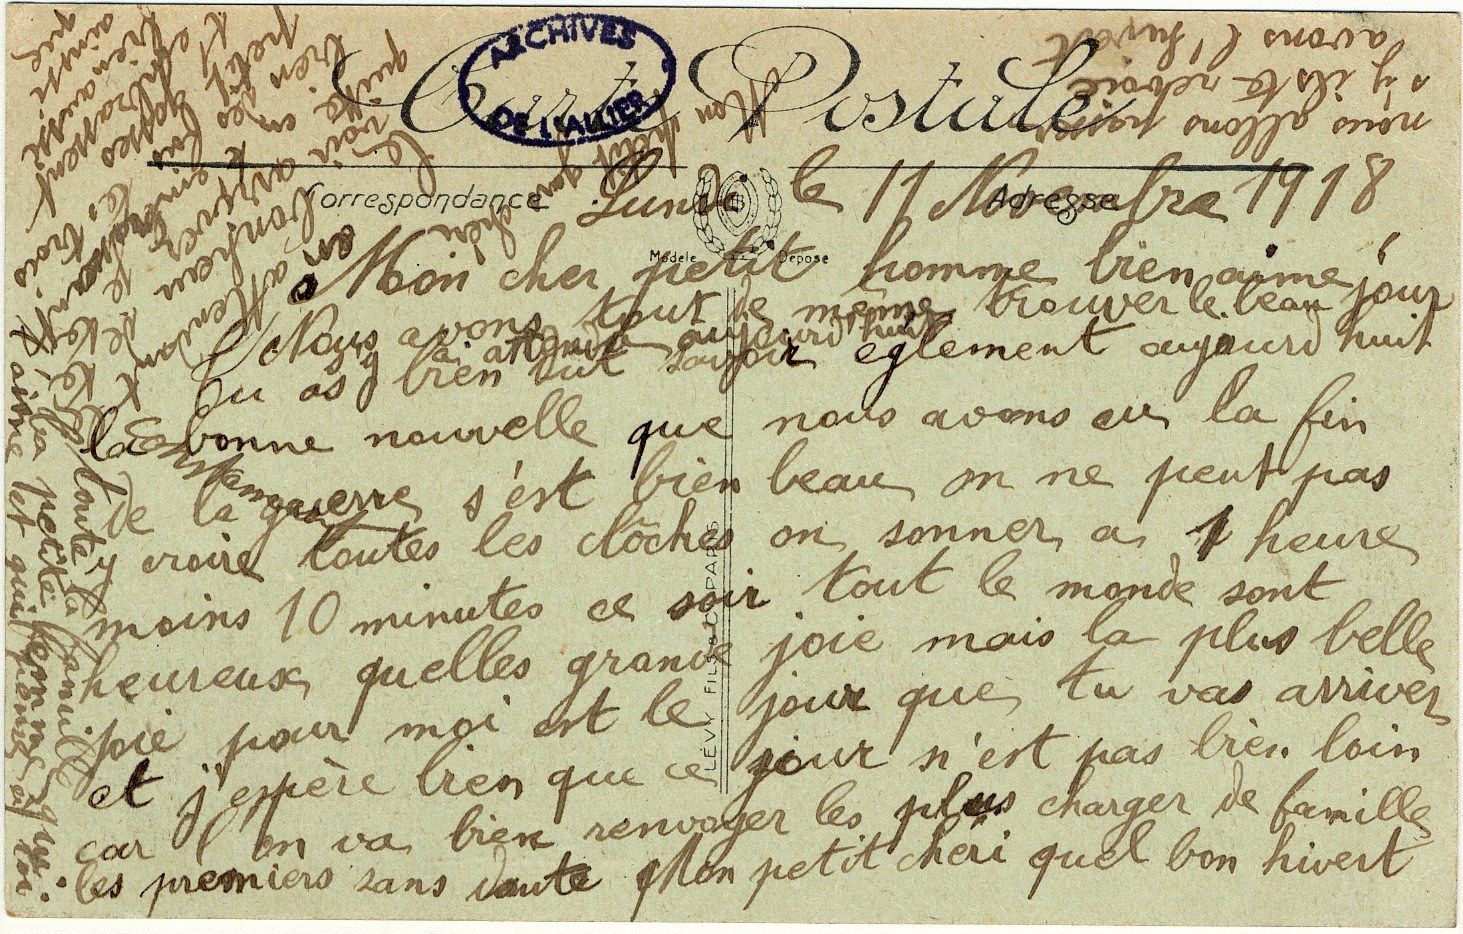 Carte Postale
ARCHIVES
DE L'ALLIER
Correspondance
Adresse
Modèle Déposé
LÉVY FILS & Cie PARIS
Lundi le 11 Novembre 1918
Mon cher petit homme bien aimé
Nous avons tout de même trouver le beau jour
attendu aujourd'huit
tu as bien dut savoir eglement aujourd huit
la bonne nouvelle que nous avons au la fin
de la guerre s'est bien beau on ne peut pas
y croire toutes les clôches on sonner a 1 heure
moins 10 minutes ce soir tout le monde sont
heureux quelles grande joie mais la plus belle
joie pour moi est le jour que tu vas arriver
et j'espère bien que ce jour n'est pas bien loin
car l'on va bien renvoyer les plus charger de famille
les premiers sans doute Mon petit chéri quel bon hivert
nous allons
s'y ils te
avons l'
Mon petit
chéri
en attendan
le bonheur
toute la famille
la petite femme qui
aime et qui pense a toi